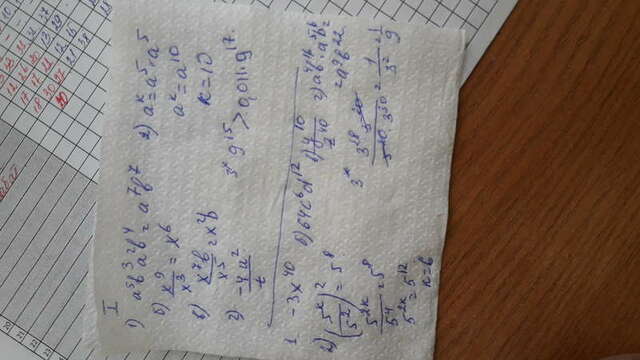 I
1) a⁵b³a²b⁴ = a⁷b⁷
б) x⁹/x³ = x⁶
в) x⁷b/x⁵ = x²b
г) -4u²/t
2) aᵏ = a⁵·a⁵
aᵏ = a¹⁰
k = 10
3* 9¹⁵ > 0,011·9¹⁷
1 -3x⁴⁰ б) 64c⁶d¹² в) y¹⁰/z⁴⁰
= a⁹b²²
2) (5ᵏ/5²)² = 5⁸
5²ᵏ/5⁴ = 5⁸
5²ᵏ = 5¹²
k = 6
3*
= 1/3² = 1/9